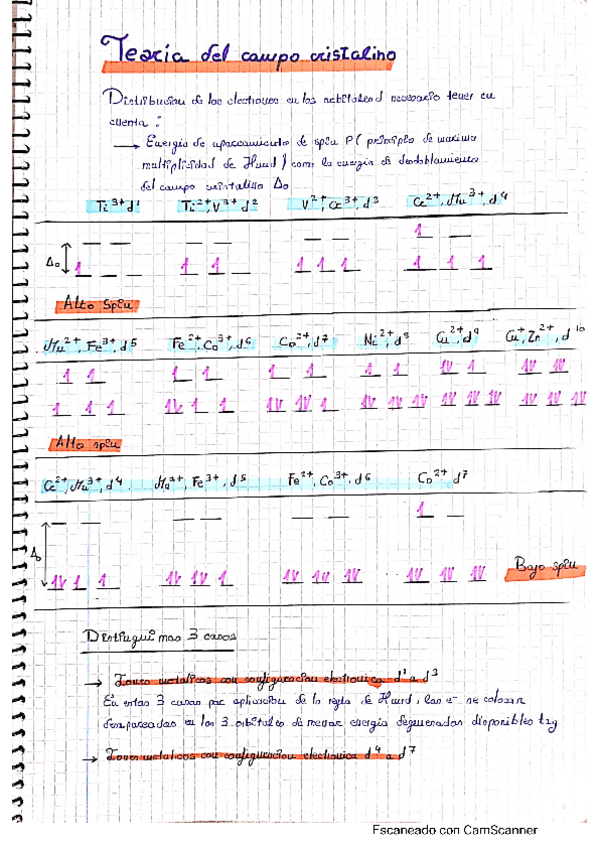 Teoría del campo cristalino
Distribución de los electrones en los orbitales necesario tener en
cuenta :
→ Energía de apareamiento de spin P ( principio de maxima
multiplicidad de Hund ) como la energía de desdoblamiento
del campo cristalino Δ₀
Ti³⁺ d¹ Ti²⁺, V³⁺ d² V²⁺ Cr³⁺, d³ Cr²⁺, Mn³⁺, d⁴
Δ₀
Alto spin
Mn²⁺, Fe³⁺, d⁵ Fe²⁺, Co³⁺, d⁶ Co²⁺, d⁷ Ni²⁺, d⁸ Cu²⁺, d⁹ Cu⁺, Zn²⁺, d¹⁰
Alto spin
Cr²⁺, Mn³⁺, d⁴ Mn²⁺, Fe³⁺, d⁵ Fe²⁺, Co³⁺, d⁶ Co²⁺ d⁷
Δ₀
Bajo spin
Distinguimos 3 casos
→ Iones metalicos con configuracion electronica d¹ a d³
En estos 3 casos por aplicacion de la regla de Hund, los e⁻ se colocan
desapareados en los 3 orbitales de menor energía degenerados disponibles t2g
→ Iones metalicos con configuracion electronica d⁴ a d⁷
Escaneado con CamScanner